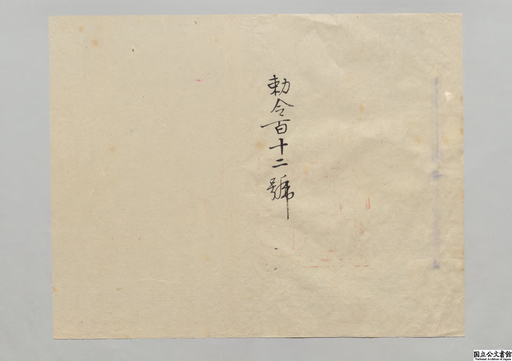 勅令百十二號
国立公文書館
National Archives of Japan